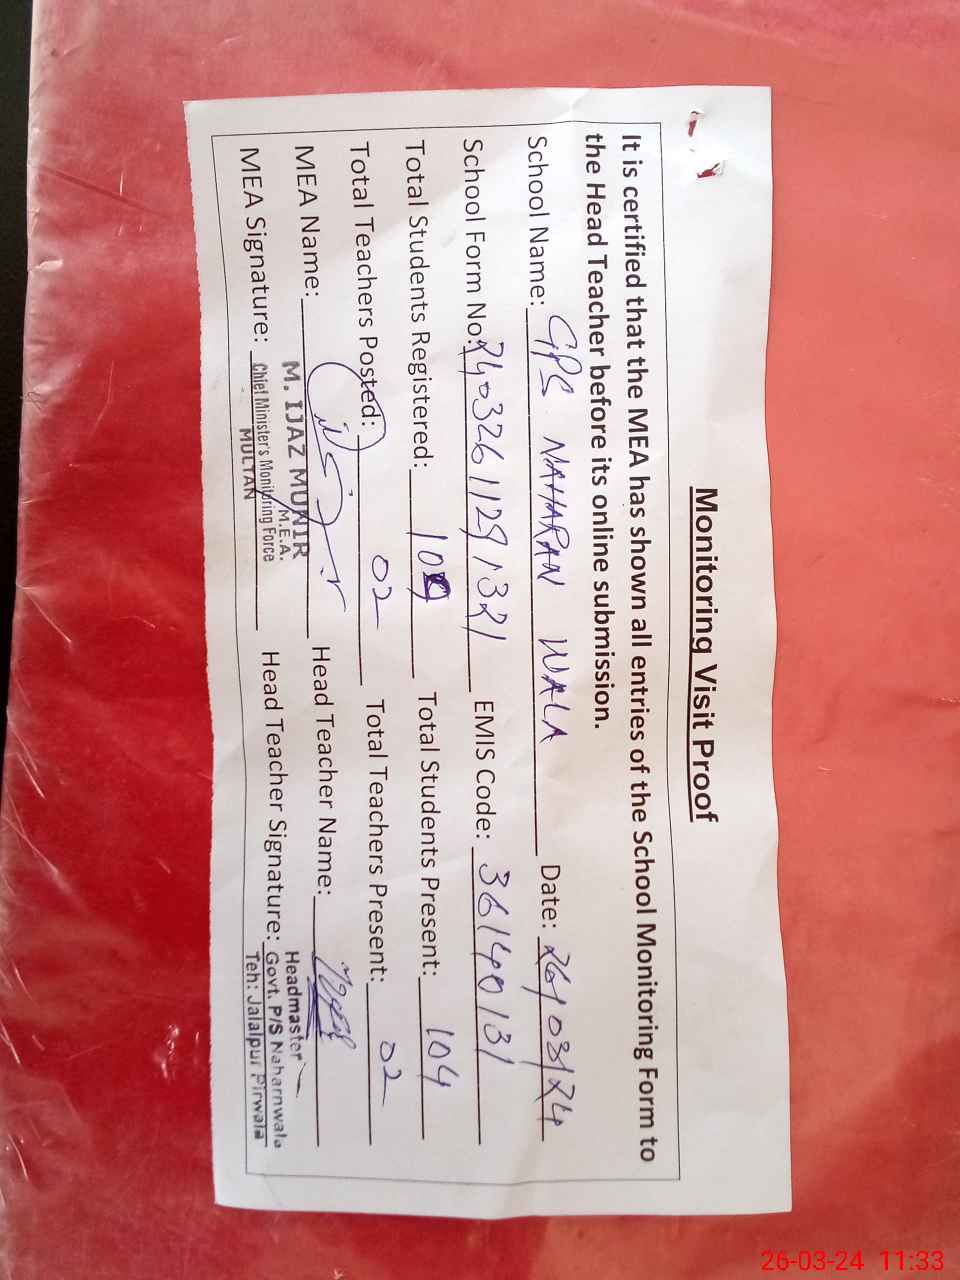 Monitoring Visit Proof
It is certified that the MEA has shown all entries of the School Monitoring Form to
the Head Teacher before its online submission.
School Name: GPS NAHARAN WALA Date: 26/03/24
School Form No: 24032611291321 EMIS Code: 36140131
Total Students Registered: 109 Total Students Present: 104
Total Teachers Posted: 02 Total Teachers Present: 02
MEA Name: Head Teacher Name:
M. IJAZ MUNIR
M.E.A.
MEA Signature: Chief Minister's Monitoring Force
MULTAN
Head Teacher Signature:
Headmaster
Govt. P/S Naharnwala
Teh: Jalalpur Pirwala
26-03-24 11:33